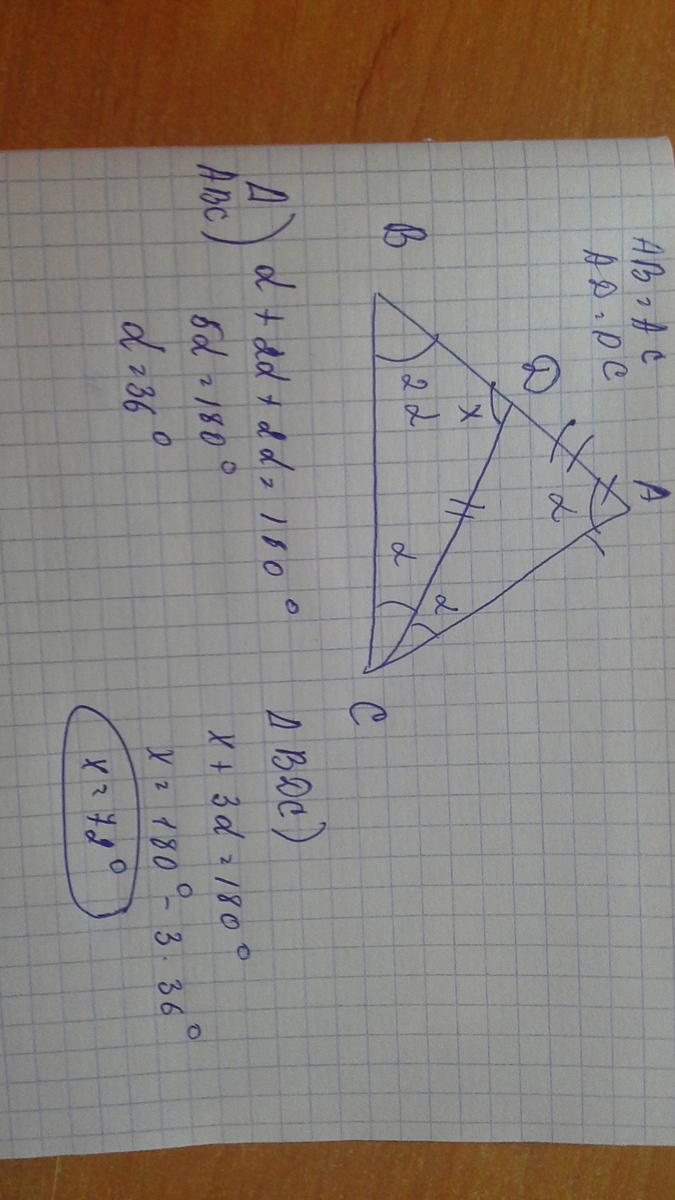 AB = AC
AD = DC
A
D
B
C
α
x
2α
α
α
Δ ABC)
α + 2α + 2α = 180°
5α = 180°
α = 36°
Δ BDC)
x + 3α = 180°
x = 180° - 3 · 36°
x = 72°